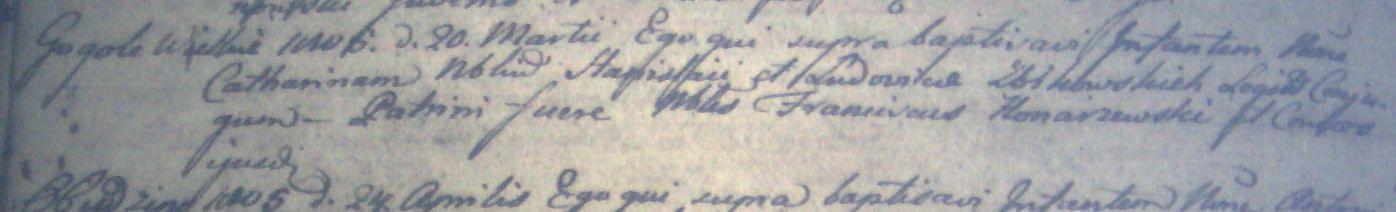 Gogole Wielkie nro 6. d. 20. Martii Ego qui supra baptisavi Infantem Nme
Catharinam Nblium Stanislai et Ludovicae Zbikowskich Legit Conju-
gum - Patrini fuere Nbles Franciscus Konarzewski et Consors
ejusd
nro 5 d. 24 Aprilis Ego qui supra baptisavi Infantem Nme